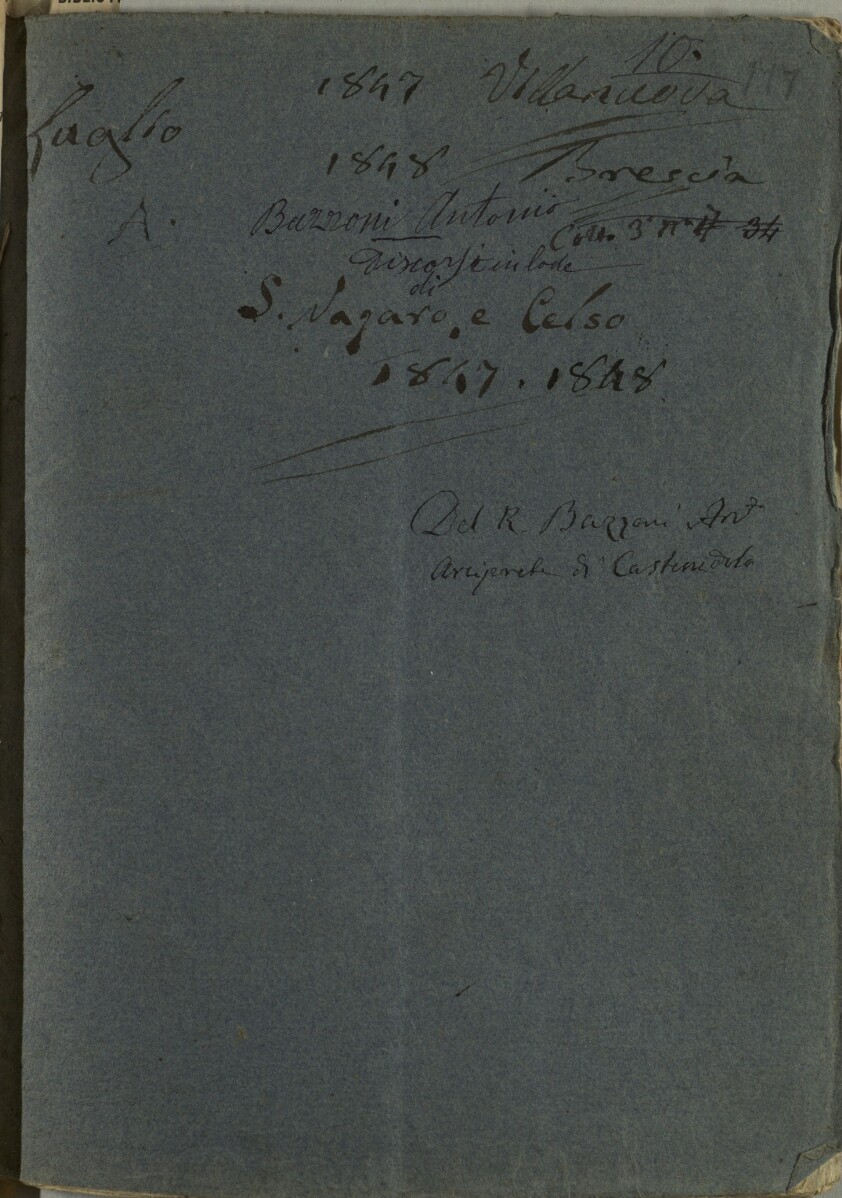 10.
1847 Villanuova 117
Luglio
1848 Brescia
A. Bazzoni Antonio
3° n° 34
Discorsi in lode
di
S. Nazaro, e Celso
1847. 1848
Del R Bazzoni Ant°
Arciprete di Castenedolo